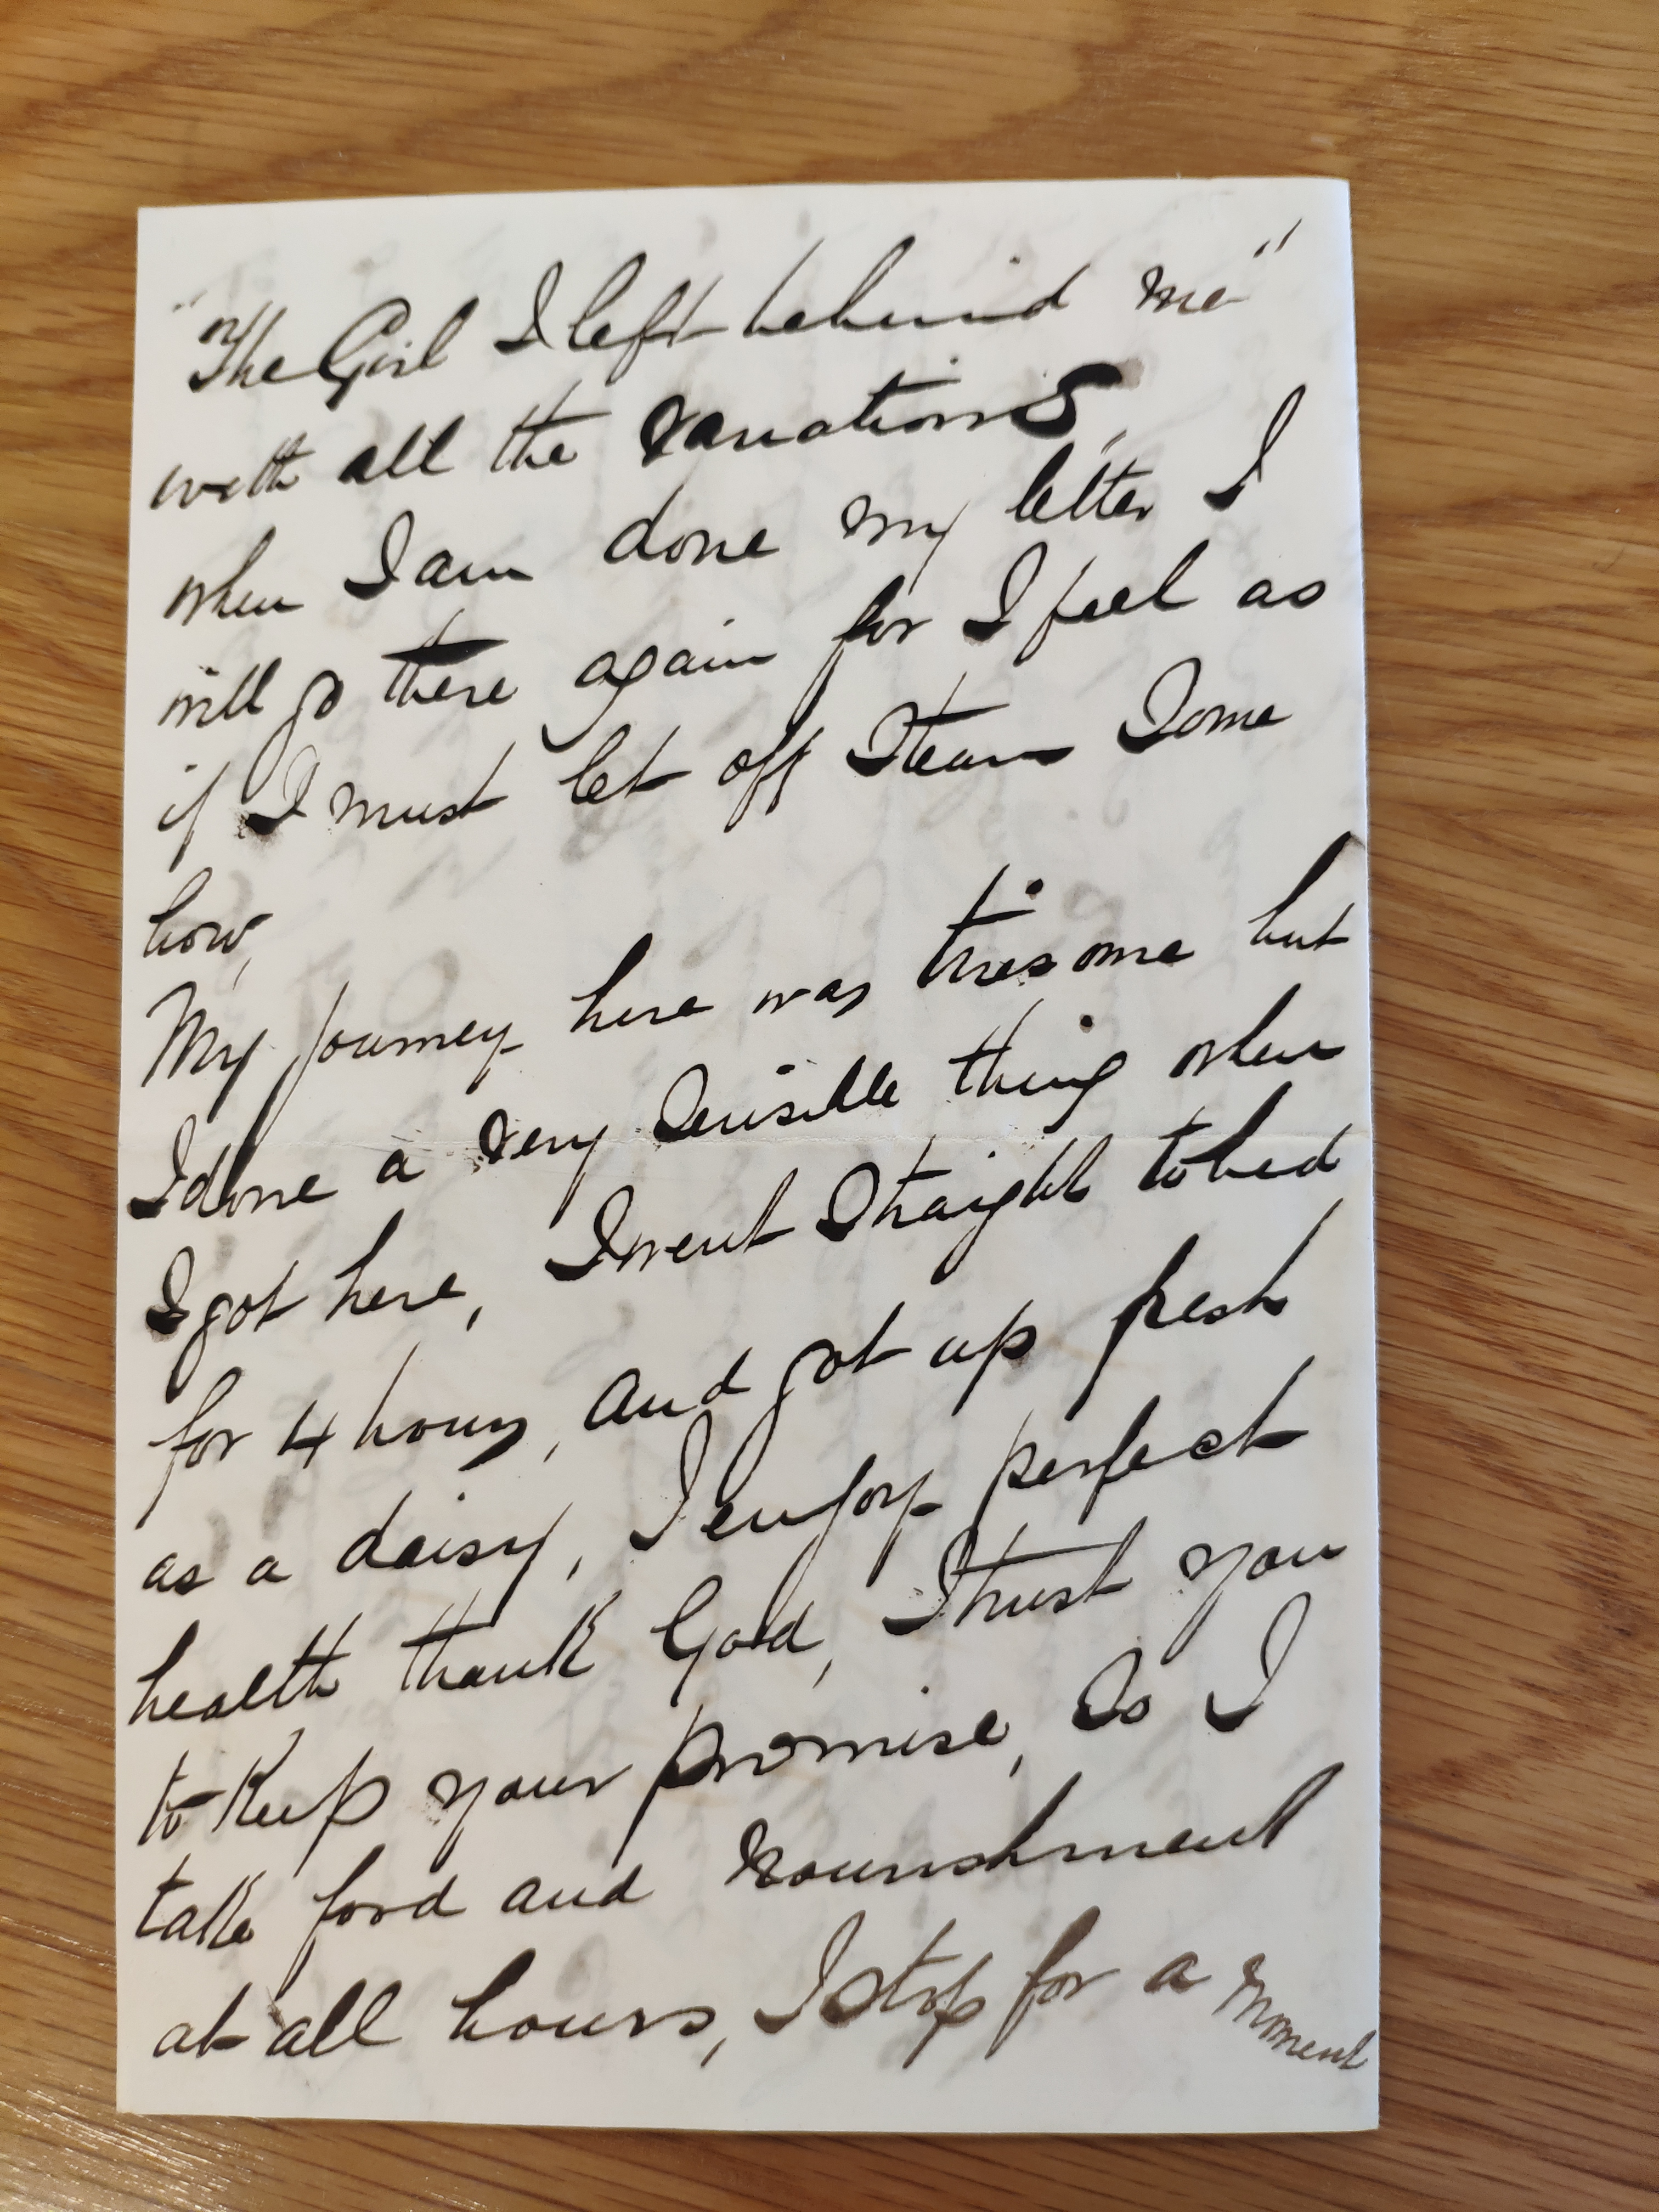 "The Girl I left behind me"
with all the variations,
when I am done my letter I
will go there again for I feel as
if I must let off Steam Some
how,
My journey here was tiresome but
I done a very Sensible thing when
I got here, I went Straight to bed
for 4 hours, and got up fresh
as a daisy, I enjoy perfect
health thank God, I trust you
to Keep your promise, So I
take food and nourishment
at all hours, I stop for a moment